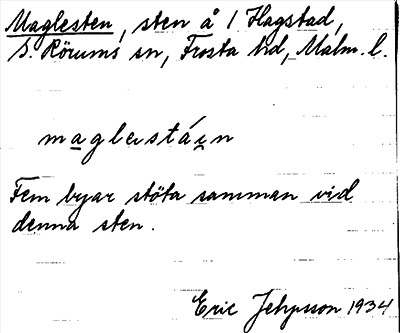 Maglesten, sten å 1 Hagstad,
S. Rörums sn, Frosta hd, Malm. l.
maglestáin
Fem byar stöta samman vid
denna sten.
Eric Jehpsson 1934